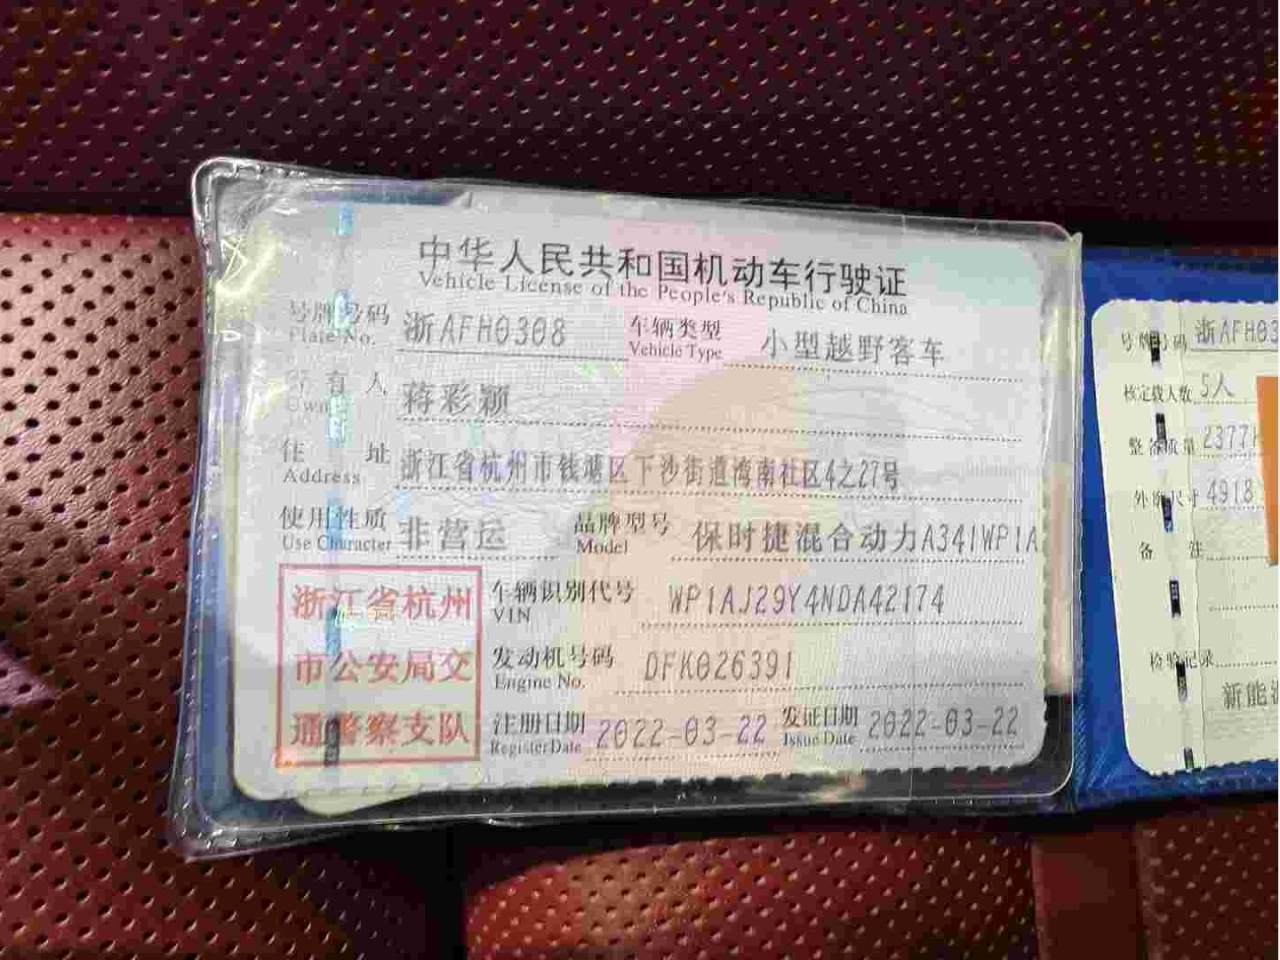 中华人民共和国机动车行驶证
Vehicle License of the People's Republic of China
号牌号码 浙AFH0308 车辆类型 小型越野客车
Plate No. Vehicle Type
所有人 蒋彩颖
Owner
住址 浙江省杭州市钱塘区下沙街道湾南社区4之27号
Address
使用性质 非营运 品牌型号 保时捷混合动力A341WP1A
Use Character Model
浙江省杭州
市公安局交
通警察支队
车辆识别代号 WP1AJ29Y4NDA42174
VIN
发动机号码 DFK026391
Engine No.
注册日期 2022-03-22 发证日期 2022-03-22
Register Date Issue Date
号牌号码 浙AFH03
核定载人数 5人
整备质量 2377
外廓尺寸 4918
备注
检验记录
新能